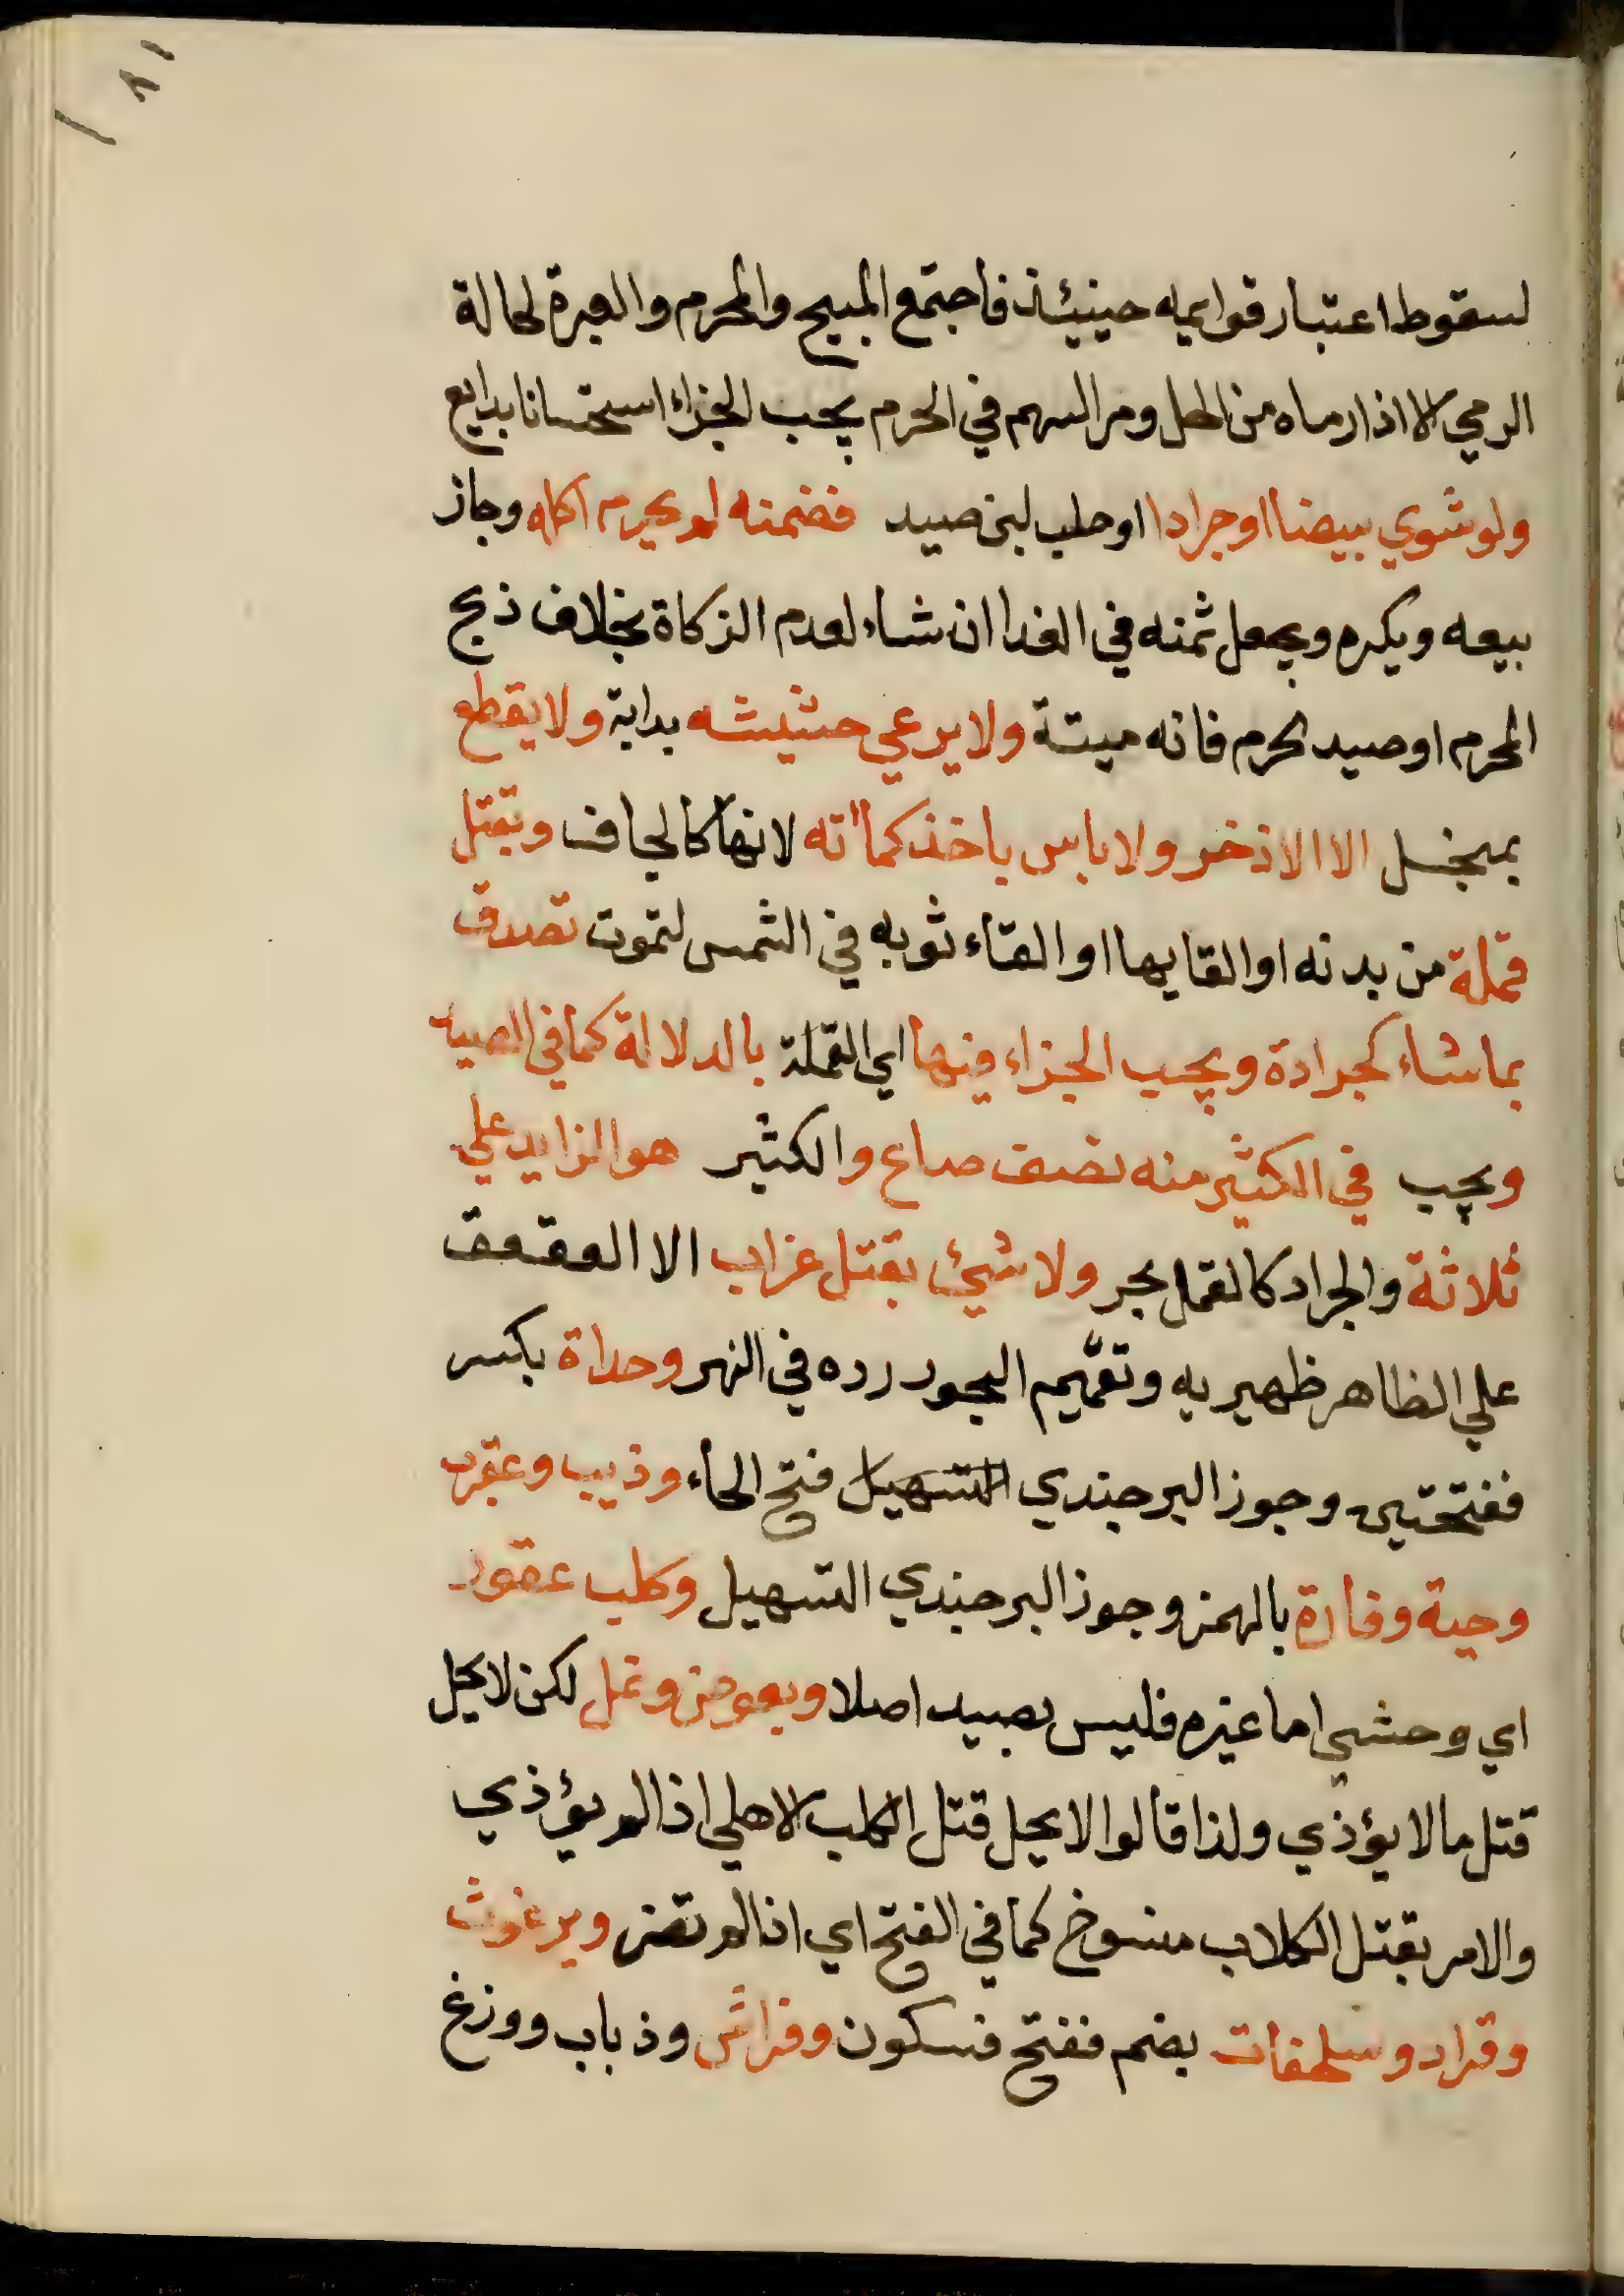 ١٨١
لسقوط اعتبار قوايمه حينيئذ فاجتمع المبيح والمحرم والعبرة لحالة
الرمي الا اذا رماه من الحل ومر السهم في الحرم يجب الجزاء استحسانا بدايع
ولو شوي بيضا اوجرادا اوحلب لبن صيد فضمنه لم يحرم اكله وجاز
بيعه ويكره ويجعل ثمنه في الفدا ان شاء لعدم الزكاة بخلاف ذبح
المحرم اوصيد لحرم فانه ميتة ولا يرعي حشيشه بدابة ولا يقطع
بمنجل الا الاذخر ولا باس باخذ كماته لانها كالجاف وبقتل
قملة من بدنه او القايها او القاء ثوبه في الشمس لتموت تصدق
بما شاء كجرادة ويجب الجزاء فيها اي القملة بالدلالة كما في الصيد
ويجب في الكثير منه نصف صاع والكثير هو الزايد علي
ثلاثة والجراد كالقمل بحر ولا شيئ بقتل غراب الا العقعق
علي الظاهر ظهيريه وتعميم البحر رده في النهر وحداة بكسر
ففتحتين وجوز البرجندي التسهيل فتح الحاء وذيب وعقرب
وحية وفارة بالهمز وجوز البرجندي التسهيل وكلب عقور
اي وحشي اما غيره فليس بصيد اصلا وبعوض ونمل لكن لا يحل
قتل ما لا يؤذي ولذا قالوا لا يحل قتل الكلب الاهلي اذا لم يؤذي
والامر بقتل الكلاب منسوخ كما في الفتح اي اذا لم تضر وبرغوث
وقراد وسلحفات بضم ففتح فسكون وفراش وذباب ووزغ